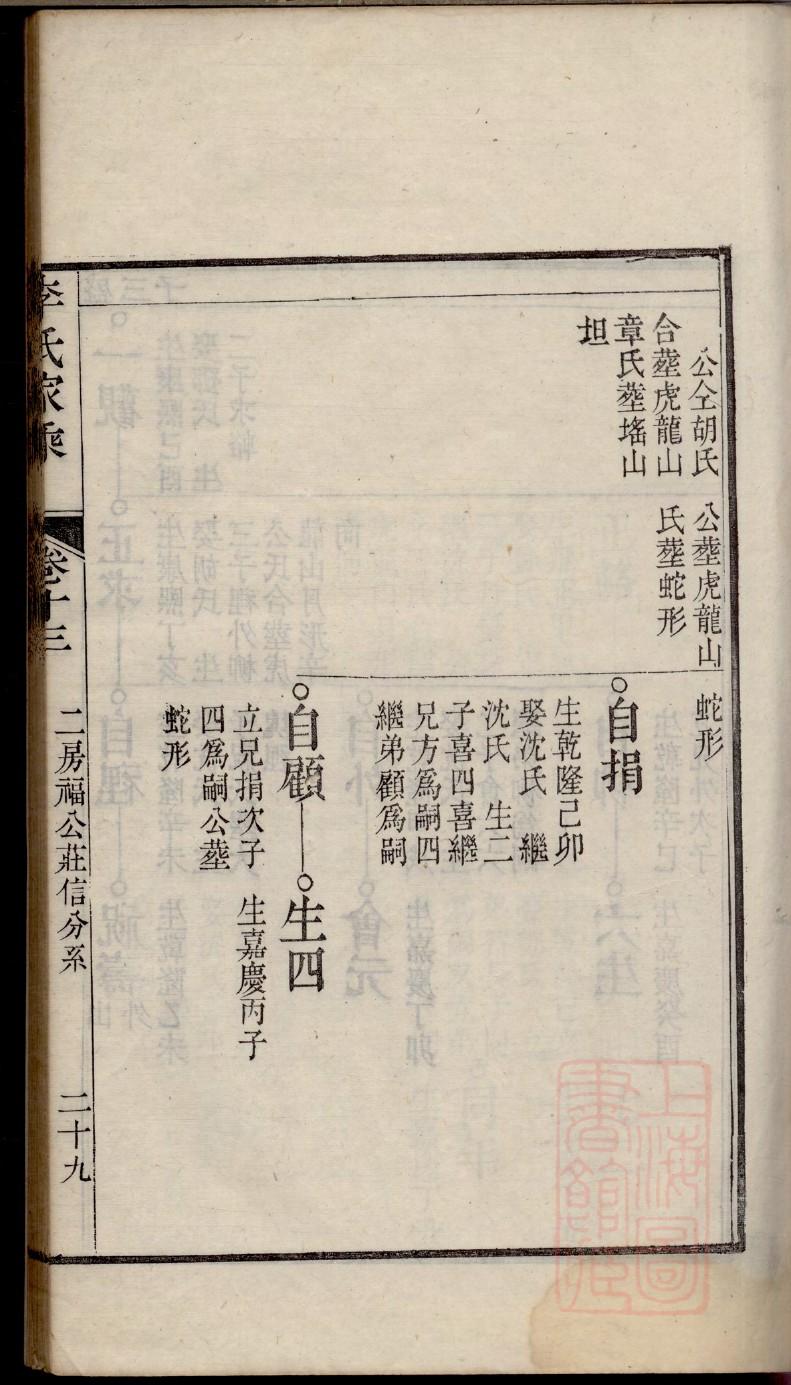 公仝胡氏
合塟虎龍山
章氏塟塔山
坦
公塟虎龍山
氏塟蛇形
蛇形
自捐
生乾隆己卯
娶沈氏 繼
沈氏 生二
子喜四喜繼
兄方爲嗣四
繼弟顧爲嗣
自顧
立兄捐次子
四爲嗣公塟
蛇形
生四
生嘉慶丙子
李氏家乘
卷十三
二房福公莊信分系
二十九
上海圖
書館藏